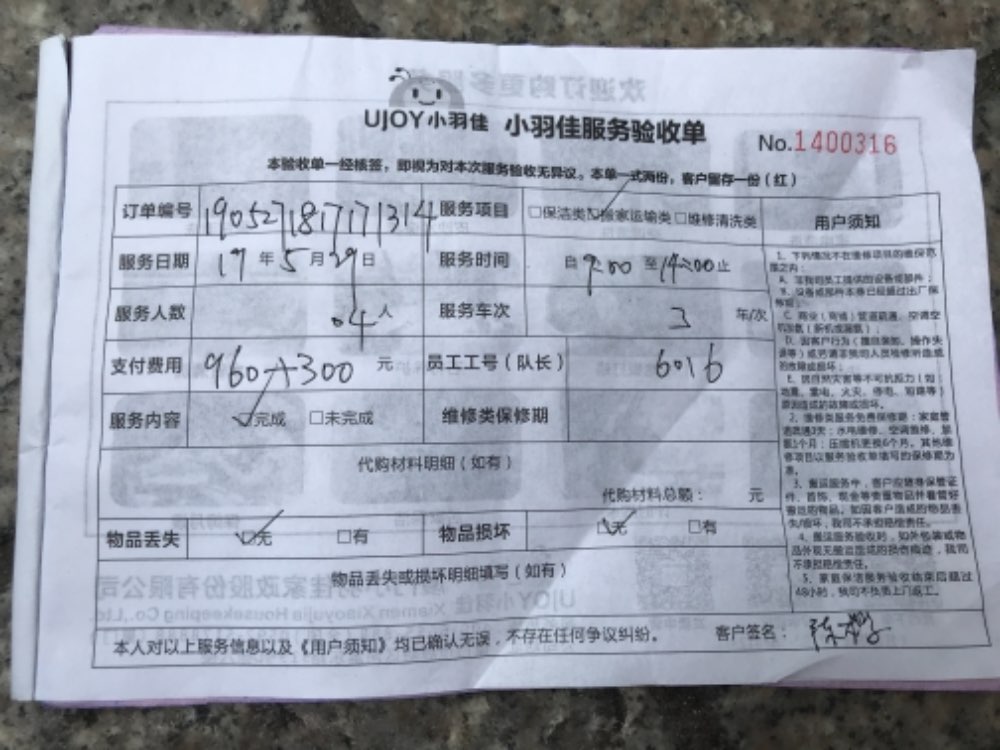 UJOY小羽佳 小羽佳服务验收单
No.1400316
本验收单一经核签，即视为对本次服务验收无异议。本单一式两份，客户留存一份（红）
订单编号 1905271817171314 服务项目 □保洁类☑搬家运输类□维修清洗类
服务日期 19年5月29日 服务时间 自9:00至14:00止
服务人数 04人 服务车次 3 车/次
支付费用 960+300 元 员工工号（队长） 6016
服务内容 ☑完成 □未完成 维修类保修期
代购材料明细（如有）
代购材料总额： 元
物品丢失 ☑无 □有 物品损坏 ☑无 □有
物品丢失或损坏明细填写（如有）
本人对以上服务信息以及《用户须知》均已确认无误，不存在任何争议纠纷。 客户签名：
用户须知
1、下列情况不在维修项目的维保范
围之内：
A、非我司员工提供的设备或部件；
B、设备或部件本身已经超过出厂保
修期；
D、因客户行为（擅自拆卸、操作失
误等）或另请非我司人员维修所造成
的故障或损坏；
E、因自然灾害等不可抗力（如：
地震、雷电、火灾、停电、短路等）
原因造成的故障或损坏。
2、维修类服务免费保修期：家庭管
修项目以服务验收单填写的保修期为
准。
3、搬运服务中，客户应随身保管证
件、首饰、现金等贵重物品并看管好
搬运的物品，如因客户造成的物品丢
失/损坏，我司不承担赔偿责任。
4、搬运服务验收时，如外包装或物
品外观无搬运造成的损伤痕迹，我司
不承担赔偿责任。
5、家庭保洁服务验收结束后超过
48小时，我司不负责上门返工。